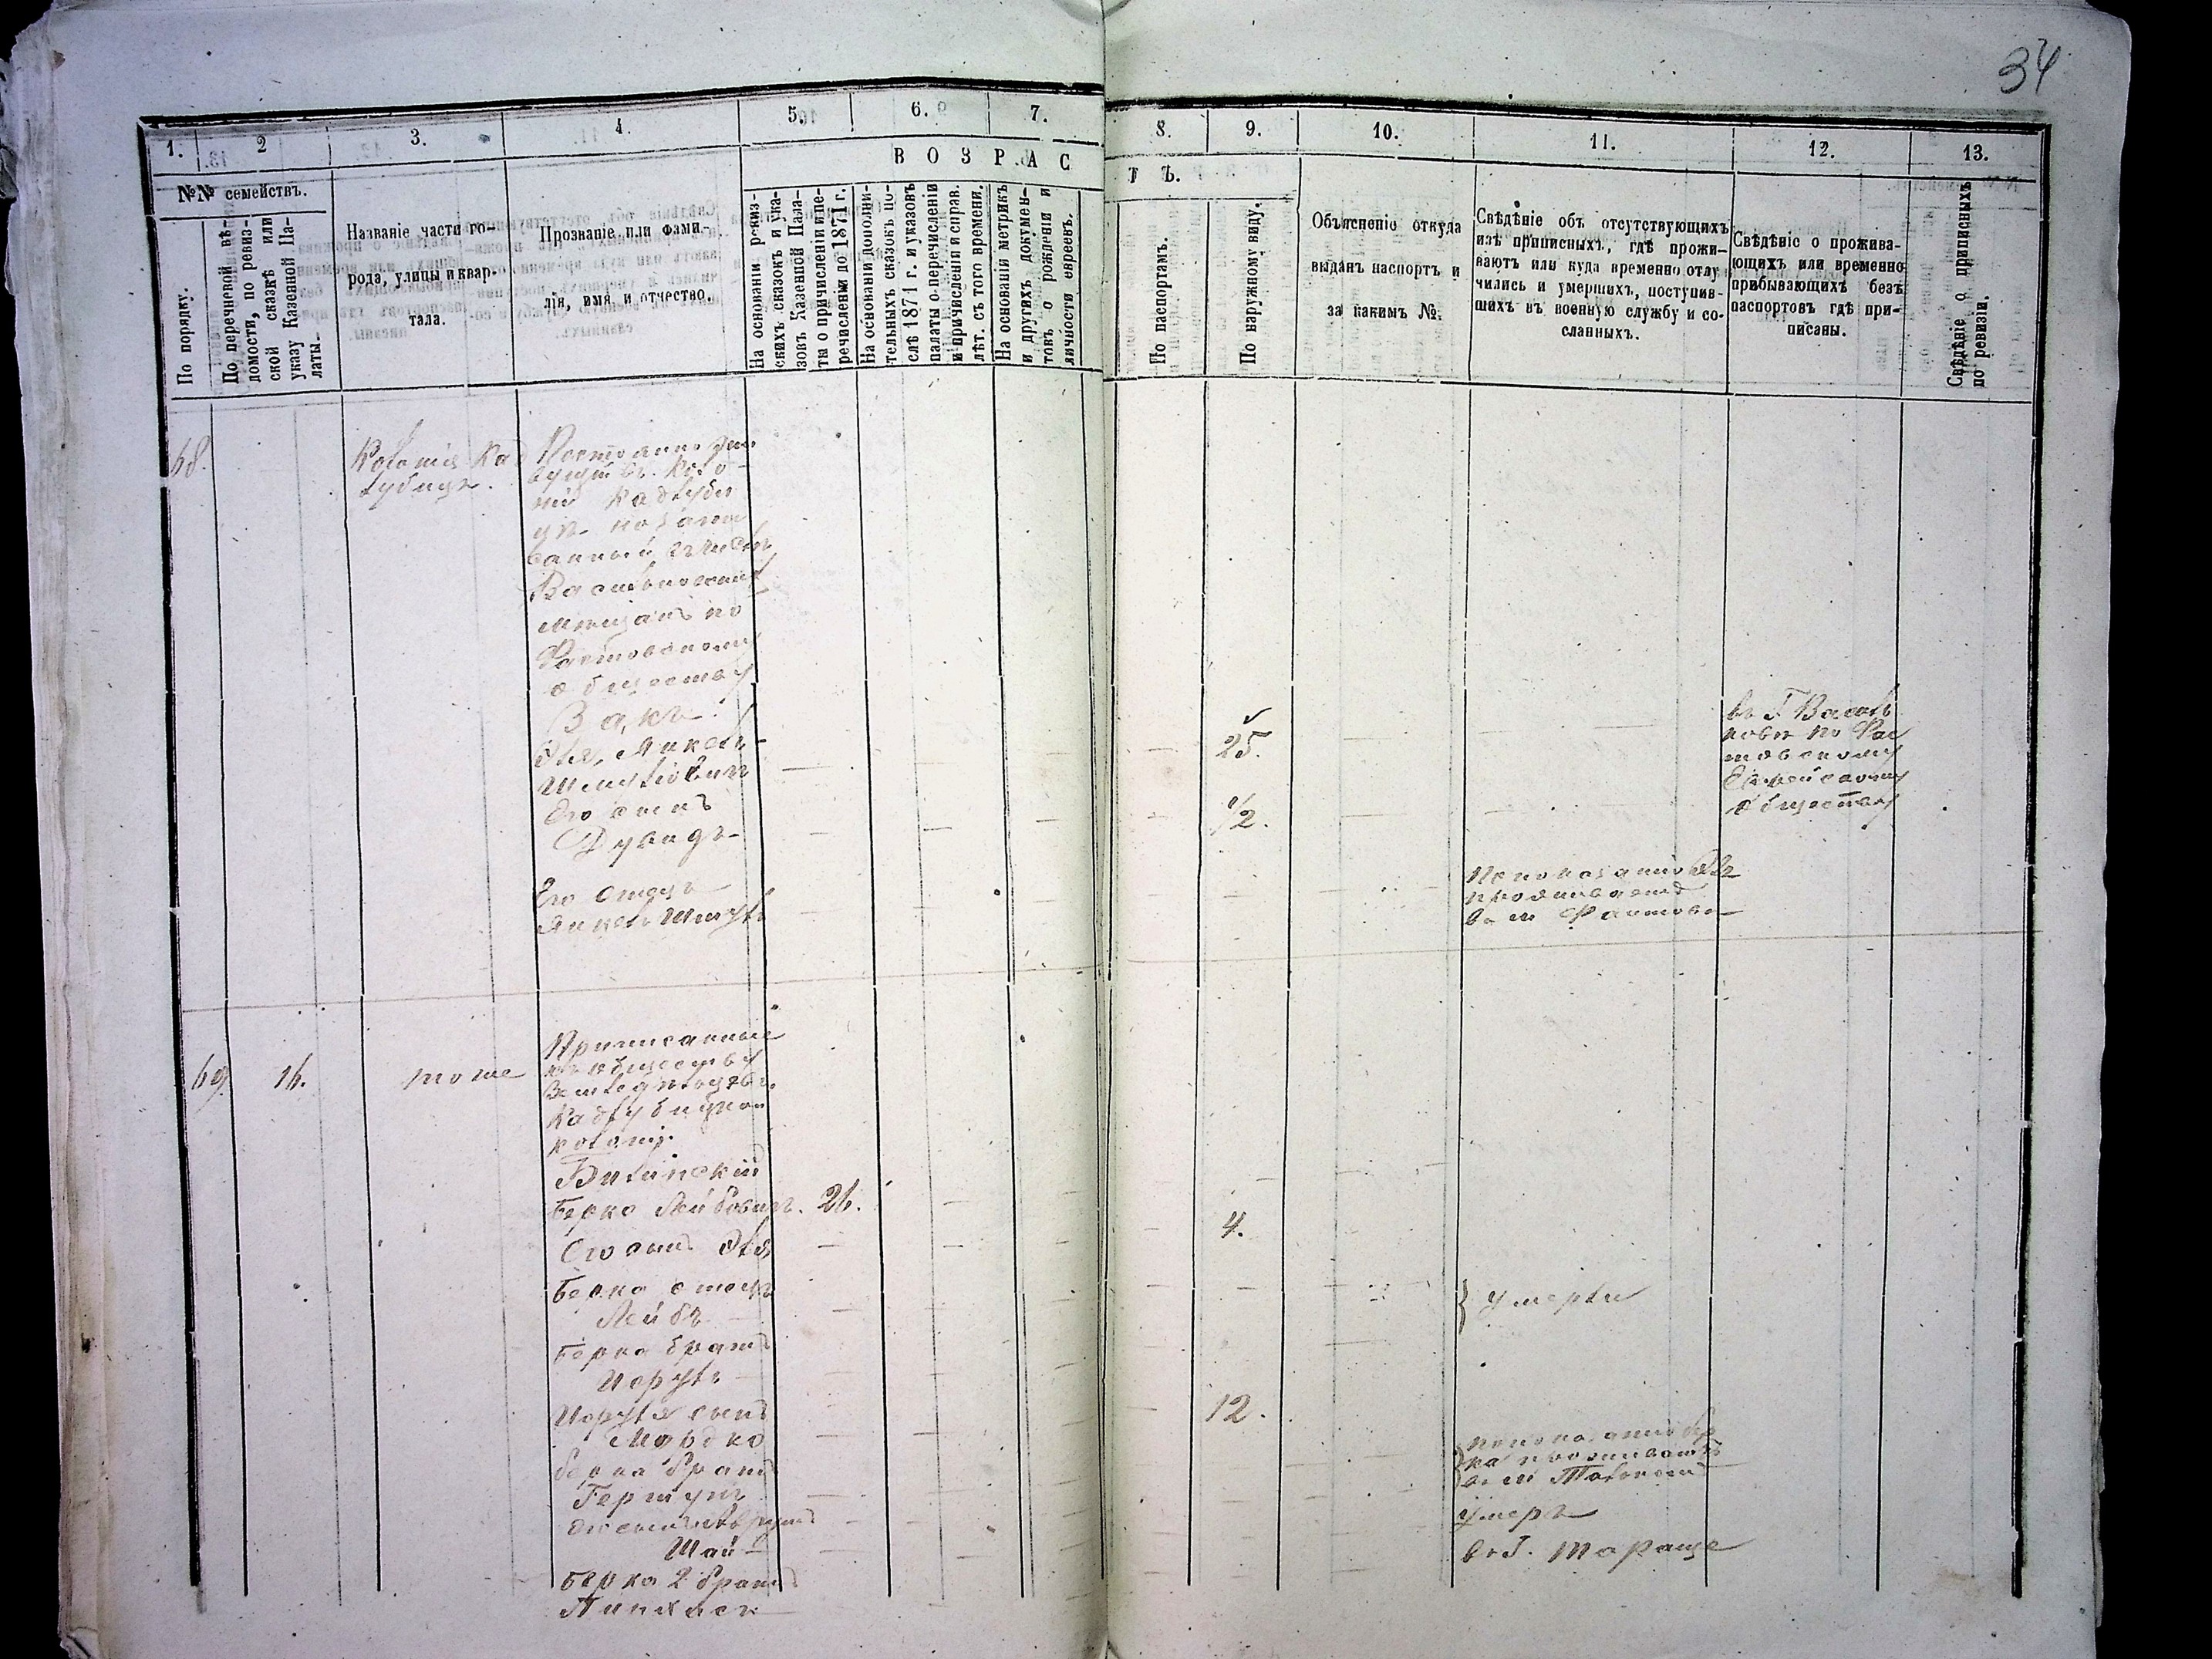 34
1.
2
3.
4.
5.
6.
7.
8.
9.
10.
11.
12.
13.
В О З Р А С
Т Ъ.
№№ семействъ.
По порядку.
По перечневой вѣ-
домости, по ревиз-
ской сказкѣ или
указу Казенной Па-
латы.
Названіе части го-
рода, улицы и квар-
тала.
Прозваніе или фами-
лія, имя и отчество.
На основаніи ревиз-
скихъ сказокъ и ука-
зовъ Казенной Пала-
ты о причисленіи и пе-
речисленіи до 1871 г.
На основаніи дополни-
тельныхъ сказокъ по-
слѣ 1871 г. и указовъ
палаты о перечисленіи
и причисленіи и справ.
лѣт. съ того времени.
На основаніи метрикъ
и другихъ докумен-
товъ о рожденіи и
личности евреевъ.
По паспортамъ.
По наружному виду.
Объясненіе откуда
выданъ паспортъ и
за какимъ №.
Свѣдѣніе объ отсутствующихъ
изъ приписныхъ, гдѣ прожи-
ваютъ или куда временно отлу
чились и умершихъ, поступив-
шихъ въ военную службу и со-
сланныхъ.
Свѣдѣніе о прожива-
ющихъ или временно
прибывающихъ безъ
паспортовъ гдѣ при-
писаны.
Свѣдѣніе о приписныхъ
по ревизіи.
68.
Колонія Кад
лубица.
Постоянно жи
вущіи въ коло-
ніи Кадлуби
цѣ
Васильковскихъ
мѣщанъ по
Фастовскому
обществу
Вакъ.
Эля, Янкель-
Шмулiовичъ
25.
въ Г. Василь
ковѣ по Фас
товскому
Еврейскому
обществу
Его сынъ
Дувидъ
1/2.
Его отецъ
Янкель Шмуль
По показанію Эли
проживаетъ
въ м Фастовѣ
69.
16.
тоже
Приписанные
къ обществу
земледѣльцевъ
Кадлубицкой
колоніи.
Билинскій
Берко Лейбовичъ.
26.
Его сынъ Эля
4.
Берка отецъ
Лейбъ
} умерли
Берка братъ
Исруль
Исруля сынъ
Мордко
12.
Берка братъ
Гершунъ
по показанію Бер
ка проживаютъ
въ м
умеръ
Шая
въ Г. Тараще
Берка 2 братъ
Пинхасъ